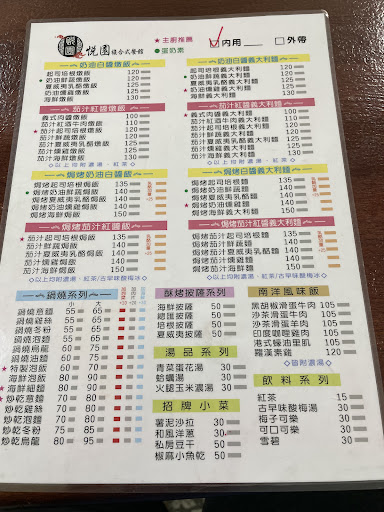 悅園 複合式餐館
★主廚推薦
●蛋奶素
內用
外帶
奶油白醬燉飯
起司培根燉飯 120
●奶油鮮蔬燉飯 120
夏威夷乳酪燉飯 120
奶油燻雞燉飯 120
海鮮燉飯 130
茄汁紅醬燉飯
義式肉醬燉飯 100
茄汁紅酒牛肉燉飯 110
★茄汁起司培根燉飯 120
茄汁鮮蔬燉飯 120
茄汁夏威夷乳酪燉飯 120
茄汁燻雞燉飯 120
茄汁海鮮燉飯 130
◇以上均附濃湯、紅茶◇
焗烤奶油白醬燉飯
焗烤起司培根焗飯 135
●焗烤奶油鮮蔬焗飯 140
焗烤夏威夷乳酪焗飯 140
焗烤奶油燻雞焗飯 140
焗烤海鮮焗飯 150
焗烤茄汁紅醬燉飯
★茄汁起司培根焗飯 135
茄汁鮮蔬焗飯 140
茄汁夏威夷乳酪焗飯 140
茄汁燻雞焗飯 140
茄汁海鮮焗飯 150
◇以上均附濃湯、紅茶/古早味酸梅冰◇
奶油白醬義大利麵
起司培根義大利麵 120
●奶油鮮蔬義大利麵 120
夏威夷乳酪義大利麵 120
奶油燻雞義大利麵 120
海鮮義大利麵 130
茄汁紅醬義大利麵
★義式肉醬義大利麵 100
茄汁紅酒牛肉義大利麵 110
茄汁起司培根義大利麵 120
茄汁鮮蔬義大利麵 120
茄汁夏威夷乳酪義大利麵 120
茄汁燻雞義大利麵 120
茄汁海鮮義大利麵 130
◇以上均附濃湯、紅茶◇
焗烤白醬義大利麵
焗烤起司培根義大利麵 135
●焗烤奶油鮮蔬義大利麵 140
焗烤夏威夷乳酪義大利麵 140
焗烤奶油燻雞麵 140
焗烤海鮮義大利麵 150
焗烤紅醬義大利麵
焗烤茄汁起司培根麵 135
焗烤茄汁鮮蔬麵 140
焗烤茄汁夏威夷乳酪麵 140
焗烤茄汁燻雞麵 140
焗烤茄汁海鮮麵 150
◇以上均附濃湯、紅茶/古早味酸梅冰◇
鍋燒系列
小 大
鍋燒意麵 55 65
鍋燒雞絲 55 65
鍋燒冬粉 55 65
鍋燒泡麵 55 65
鍋燒烏龍 60 70
鍋燒油麵 60 70
★特製泡飯 60 70
★海鮮泡飯 70 80
★海鮮細麵 70 80
★炒乾意麵 70 80
炒乾雞絲 70 80
炒乾泡麵 70 80
炒乾冬粉 75 85
炒乾烏龍 80 90
酥烤披薩系列
海鮮披薩 50
燻雞披薩 50
培根披薩 50
夏威夷披薩 50
湯品系列
青菜蛋花湯 30
蛤蠣湯 30
火腿玉米濃湯 30
招牌小菜
薯泥沙拉 30
和風洋蔥 30
私房豆干 30
椒麻小魚乾 50
南洋風味飯
黑胡椒滑蛋牛肉 105
沙茶滑蛋牛肉 105
沙茶滑蛋羊肉 105
印度咖哩雞肉 105
港式蠔油里肌 105
羅漢素雞 120
◇皆附濃湯◇
飲料系列
紅茶 15
古早味酸梅湯 30
梅子可樂 30
可口可樂 30
雪碧 30